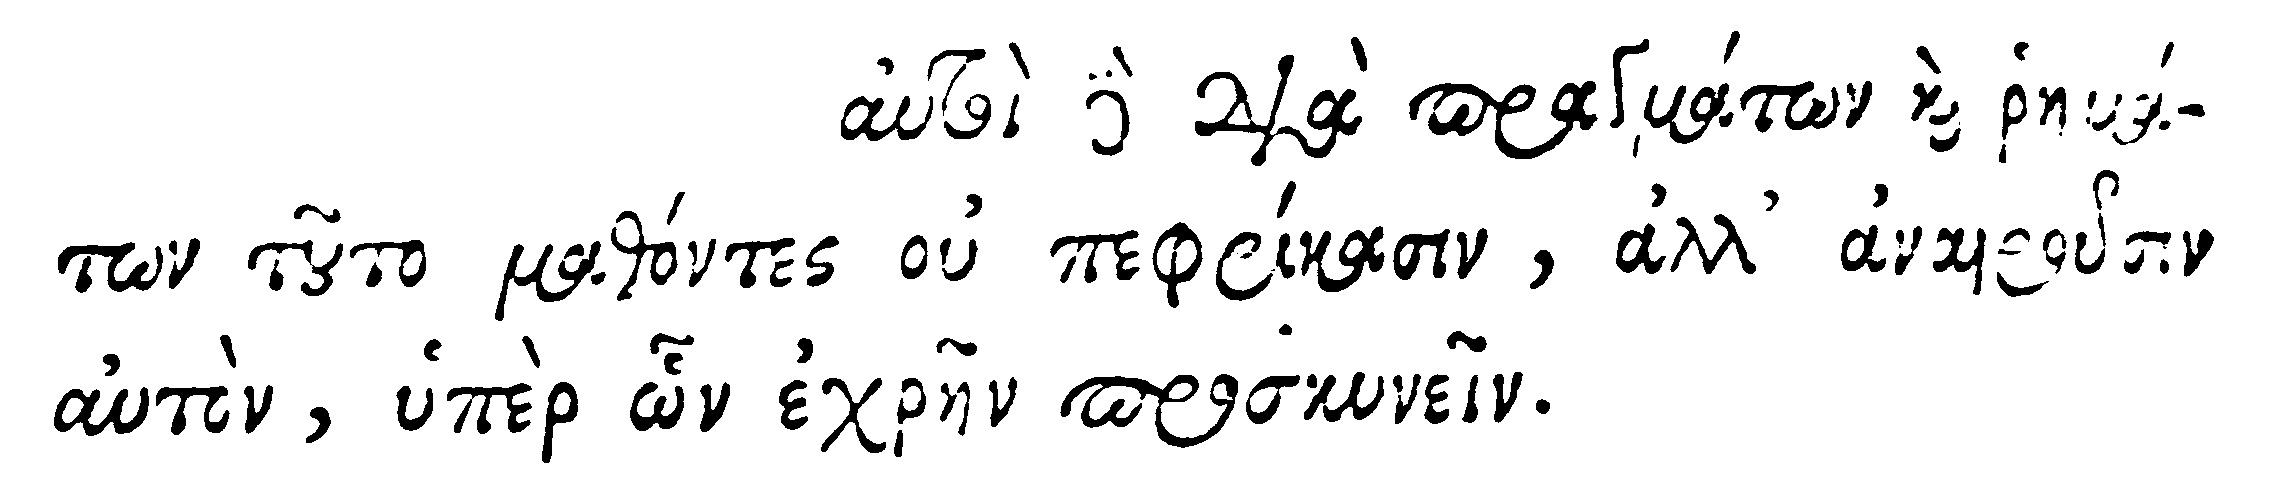 αὐτοὶ δὲ διὰ πραγμάτων καὶ ῥημά-
των τοῦτο μαθόντες οὐ πεφρίκασιν, ἀλλ' ἀναιροῦσιν
αὐτὸν, ὑπὲρ ὧν ἐχρῆν προσκυνεῖν.